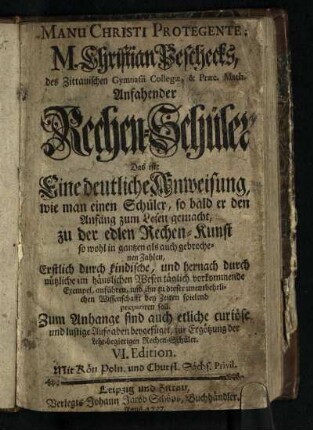 MANU CHRISTI PROTEGENTE.
M. Christian Peschecks,
des Zittauischen Gymnasii Collegæ, & Præc. Math.
Anfahender
Rechen-Schüler
Das ist:
Eine deutliche Anweisung,
wie man einen Schüler, so bald er den
Anfang zum Lesen gemacht,
zu der edlen Rechen-Kunst
so wohl in gantzen als auch gebroche-
nen Zahlen,
Erstlich durch kindische, und hernach durch
nützliche im häuslichen Wesen täglich vorkommende
Exempel, anführen, und ihn zu dieser unentbehrli-
chen Wissenschafft bey Zeiten spielend
præpariren soll.
Zum Anhange sind auch etliche curiöse
und lustige Aufgaben beygefüget, zur Ergötzung der
Lehr-begierigen Rechen-Schüler.
VI. Edition.
Mit Kön. Poln. und Churfl. Sächs. Privil.
Leipzig und Zittau,
Verlegts Johann Jacob Schöps, Buchhändler.